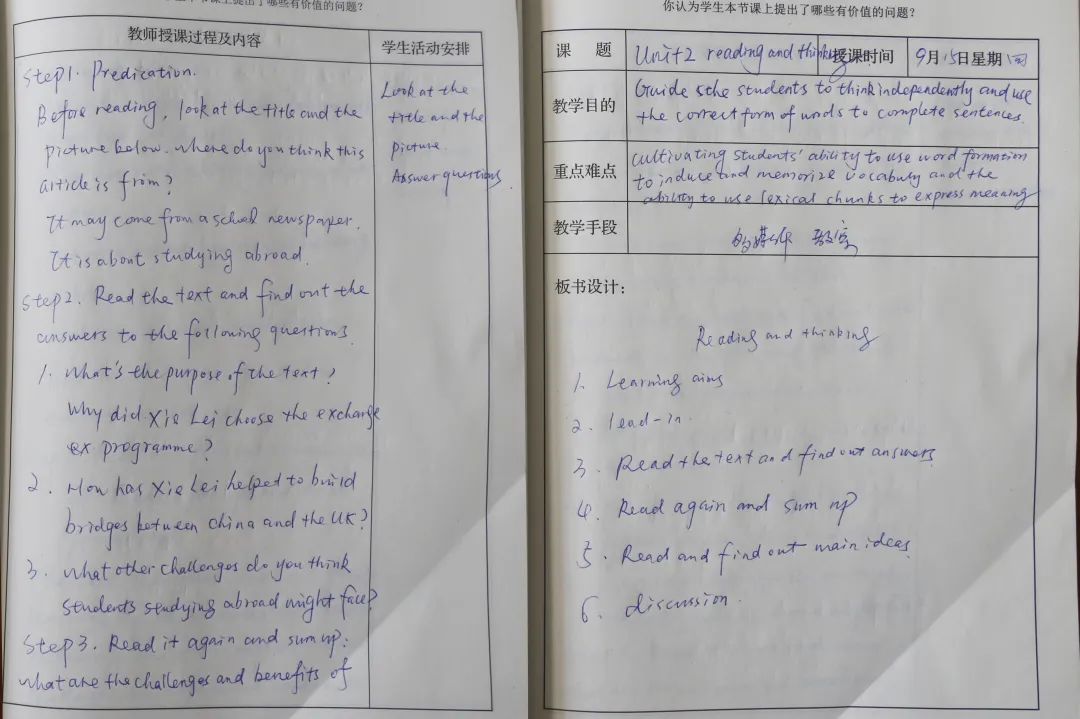 节课上提出了哪些有价值的问题?
教师授课过程及内容
学生活动安排
Step1. Predication.
Before reading, look at the title and the
picture below. where do you think this
article is from?
It may come from a school newspaper.
It is about studying abroad.
Step2. Read the text and find out the
answers to the following questions.
1. What's the purpose of the text?
Why did Xie Lei choose the exchange
ex programme?
2. How has Xie Lei helped to build
bridges between China and the UK?
3. What other challenges do you think
students studying abroad might face?
Step3. Read it again and sum up.
what are the challenges and benefits of
Look at the
title and the
picture.
Answer questions.
你认为学生本节课上提出了哪些有价值的问题?
课 题
Unit2 reading and thinking
授课时间
9月15日星期四
教学目的
Guide sthe students to think independently and use
the correct form of words to complete sentences.
重点难点
cultivating students' ability to use word formation
to induce and memorize vocabuly and the
ability to use lexical chunks to express meaning
教学手段
板书设计:
Reading and thinking
1. Learning aims
2. lead-in.
3. Read the text and find out answers
4. Read again and sum up
5. Read and find out main ideas
6. discussion.